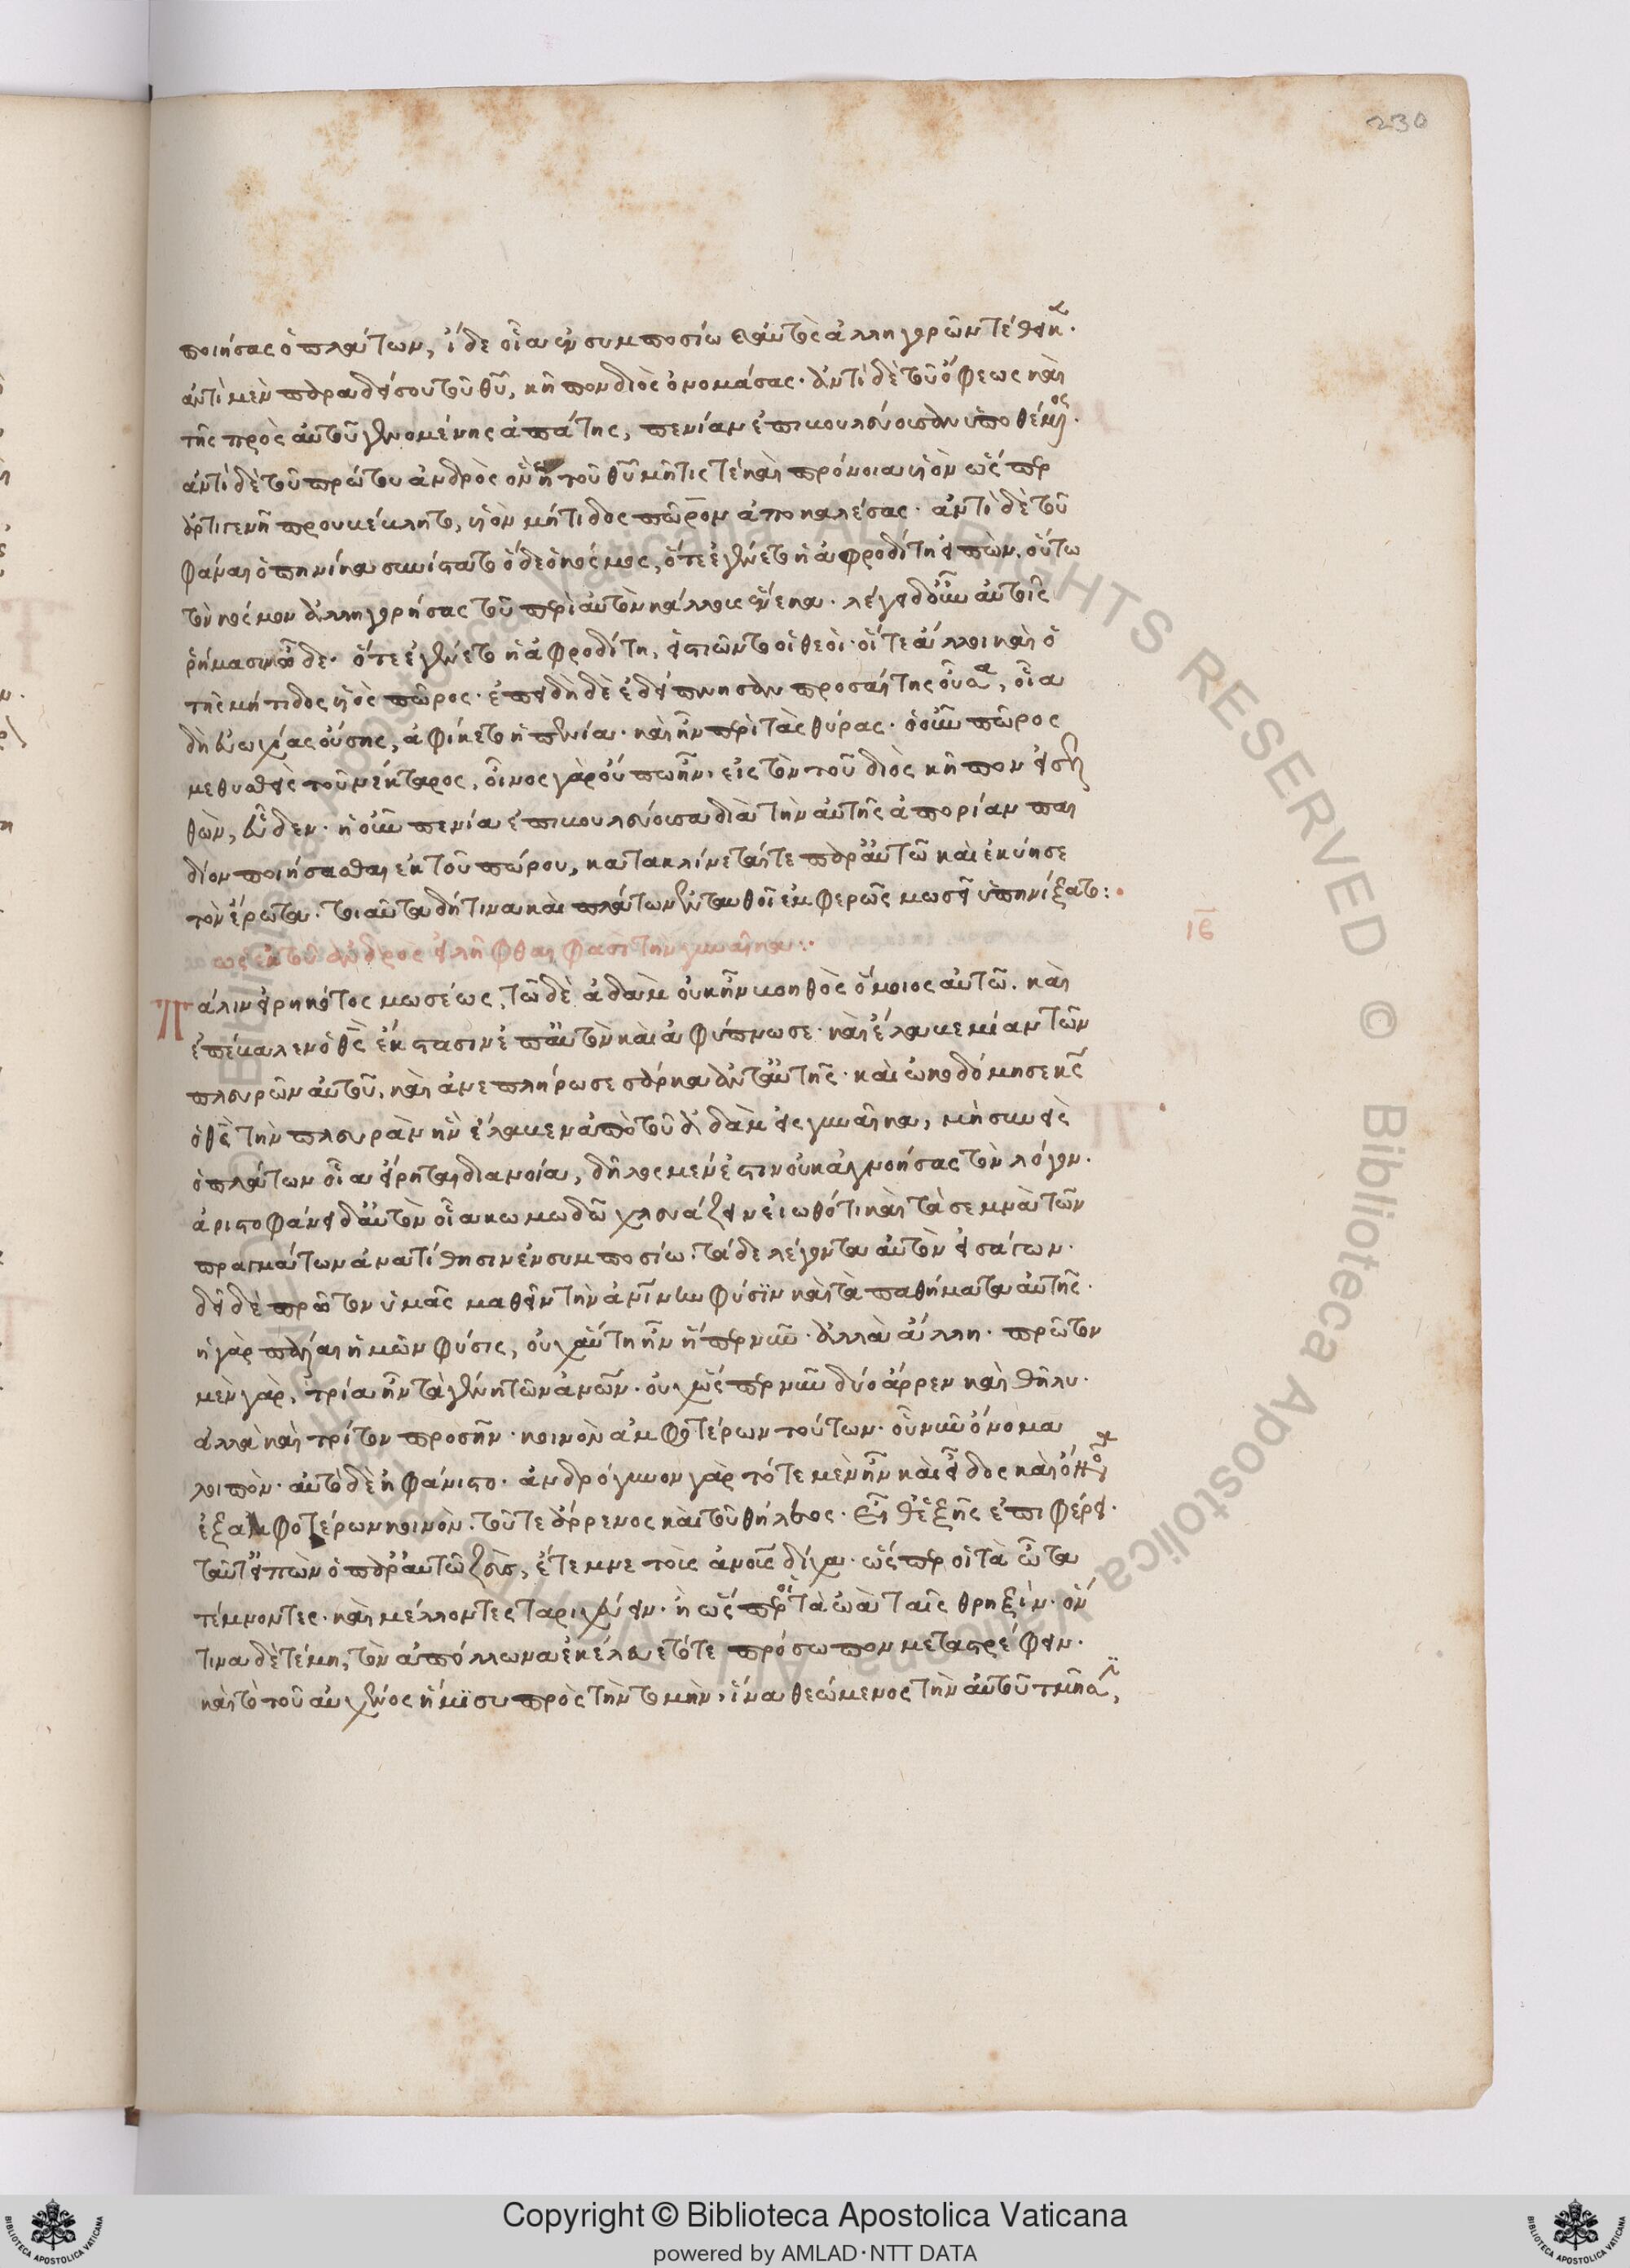 230
ποιήσας ὁ πλάτων, ἴδε οἷα ἐν συμποσίω καὶ αὐτὸς ἀλληγορῶν τέθεικ.
ἀντὶ μὲν παραδείσου τοῦ θυ, κῆπον διὸς ὀνομάσας. ἀντὶ δὲ τοῦ ὄφεως καὶ
τῆς πρὸς αὐτοῦ γενομένης ἀπάτης, πενίαν ἐπιβουλεύουσαν ὑποθέμενος.
ἀντὶ δὲ τοῦ πρώτου ἀνδρὸς ὃν ἡ τοῦ θυ μῆτίς τε καὶ πρόνοια υἱὸν ὥσπερ
ἀρτιγενῆ προυβέβλητο, υἱὸν μήτιδος πῶρον ἀποκαλέσας. ἀντὶ δὲ τοῦ
φάναι ὁπηνίκα συνίστατο ὅδε ὁ κόσμος, ὅτε ἐγένετο ἡ ἀφροδίτη εἰπών. οὕτω
τὸν κόσμον ἀλληγορήσας τοῦ περὶ αὐτὸν κάλλους ἕνεκα. λέγει δ' οὖν αὐτοῖς
ῥήμασιν ὧδε. ὅτε ἐγένετο ἡ ἀφροδίτη, εἱστιῶντο οἱ θεοί. οἵ τε ἄλλοι καὶ ὁ
τῆς μήτιδος υἱὸς πῶρος. ἐπειδὴ δὲ ἐδείπνησαν προσαίτης οὖσα, οἷα
δὴ εὐωχίας οὔσης, ἀφίκετο ἡ πενία. καὶ ἦν περὶ τὰς θύρας. ὁ οὖν πῶρος
μεθυσθεὶς τοῦ νέκταρος, οἶνος γὰρ οὔπω ἦν. εἰς τὸν τοῦ διὸς κῆπον εἰσελ
θὼν, εὗδεν. ἡ οὖν πενία ἐπιβουλεύουσα διὰ τὴν αὐτῆς ἀπορίαν παι
δίον ποιήσασθαι ἐκ τοῦ πώρου, κατακλίνεταί τε παρ' αὐτῶ καὶ ἐκύησε
τὸν ἔρωτα. τοιαῦτα δή τινα καὶ πλάτων ἐνταυθοῖ ἐμφερῶς μωσεῖ ὑπηνίξατο:
ιε
ὡς ἐκ τοῦ ἀνδρὸς εἰλῆφθαι φασὶ τὴν γυναῖκα:
Πάλιν εἰρηκότος μωσέως, τῶ δὲ ἀδὰμ οὐκ ἦν βοηθὸς ὅμοιος αὐτῶ. καὶ
ἐπέβαλεν ὁ θς ἔκστασιν ἐπ' αὐτὸν καὶ ἀφύπνωσε. καὶ ἔλαβε μίαν τῶν
πλευρῶν αὐτοῦ, καὶ ἀνεπλήρωσε σάρκα ἀντ' αὐτῆς. καὶ ὠκοδόμησε κς
ὁ θς τὴν πλευρὰν ἣν ἔλαβεν ἀπὸ τοῦ ἀδὰμ εἰς γυναῖκα, μὴ συνεὶς
ὁ πλάτων οἵα εἴρηται διανοία, δῆλος μέν ἐστιν οὐκ ἀγνοήσας τὸν λόγον.
ἀριστοφάνει δ' αὐτὸν οἷα κωμωδῶ χλευάζειν εἰωθότι καὶ τὰ σεμνὰ τῶν
πραγμάτων ἀνατίθησιν ἐν συμποσίω. τάδε λέγοντα αὐτὸν εἰσάγων.
δεῖ δὲ πρῶτον ὑμᾶς μαθεῖν τὴν ἀνίνην φύσιν καὶ τὰ παθήματα αὐτῆς.
ἡ γὰρ πάλαι ἡμῶν φύσις, οὐχ αὕτη ἦν ἥπερ νῦν. ἀλλὰ ἄλλη. πρῶτον
μὲν γὰρ, τρία ἦν τὰ γένη τῶν ἀνων. οὐχ ὥσπερ νῦν δύο ἄρρεν καὶ θῆλυ.
ἀλλὰ καὶ τρίτον προσῆν. κοινὸν ἀμφοτέρων τούτων. οὗ νῦν ὄνομα
λοιπὸν. αὐτὸ δὲ ἠφάνιστο. ἀνδρόγυνον γὰρ τότε μὲν ἦν καὶ εἶδος καὶ ὄνομα
ἐξ ἀμφοτέρων κοινὸν. τοῦ τε ἄρρενος καὶ τοῦ θήλεος. εἶθ' ἑξῆς ἐπιφέρει.
ταῦτ' εἰπὼν ὁ παρ' αὐτῶ ζεὺς, ἔτεμνε τοὺς ἀνους δίχα. ὥσπερ οἱ τὰ ὦτα
τέμνοντες. καὶ μέλλοντες ταριχεύειν. ἢ ὥσπερ οἱ τὰ ὠὰ ταῖς θρηξίν. ὅν
τινα δὲ τέμη, τὸν ἀπόλλωνα ἐκέλευε τό τε πρόσωπον μεταστρέφειν.
καὶ τὸ τοῦ αὐχένος ἥμισυ πρὸς τὴν τομὴν, ἵνα θεώμενος τὴν αὐτοῦ τμῆσιν,
Copyright © Biblioteca Apostolica Vaticana
powered by AMLAD·NTT DATA